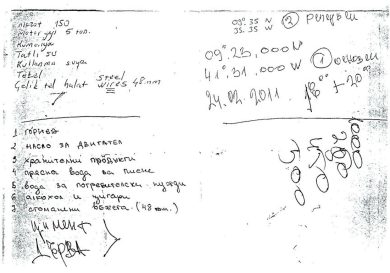 mazot 150
Motor yağı 5 ton.
Kumanya
Tatlı su
Kullanma suyu
Çelik tel halat
steel
wires 48 mm
09°.35 N
35.35 W
②
09°.23,000 N
41°.31.000 W ①
24.02.2011.
18° + 20°
1. гориво
2 масло за двигателя
3 хранителни продукти
прясна вода за пиене
5 вода за потребителски нужди
6 алкохол и цигари
7 стоманени въжета. (48 mm.)
Цимент
200
500